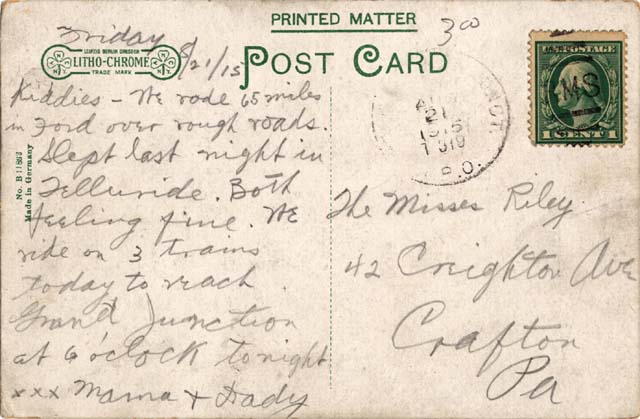 PRINTED MATTER
Friday
8/21/15
300
LEIPZIG BERLIN DRESDEN
LITHO-CHROME
TRADE MARK
N.Y.
N.Y.
POST CARD
U.S. POSTAGE
1 CENT 1
MS
21
1915
No. B 11863
Made in Germany
Kiddies - We rode 65 miles
in Ford over rough roads.
Slept last night in
Telluride. Both
feeling fine. We
ride on 3 trains
today to reach
Grand Junction
at 6 o'clock tonight
xxx Mama + Dady
The Misses Riley
42 Creighton Ave
Crafton
Pa